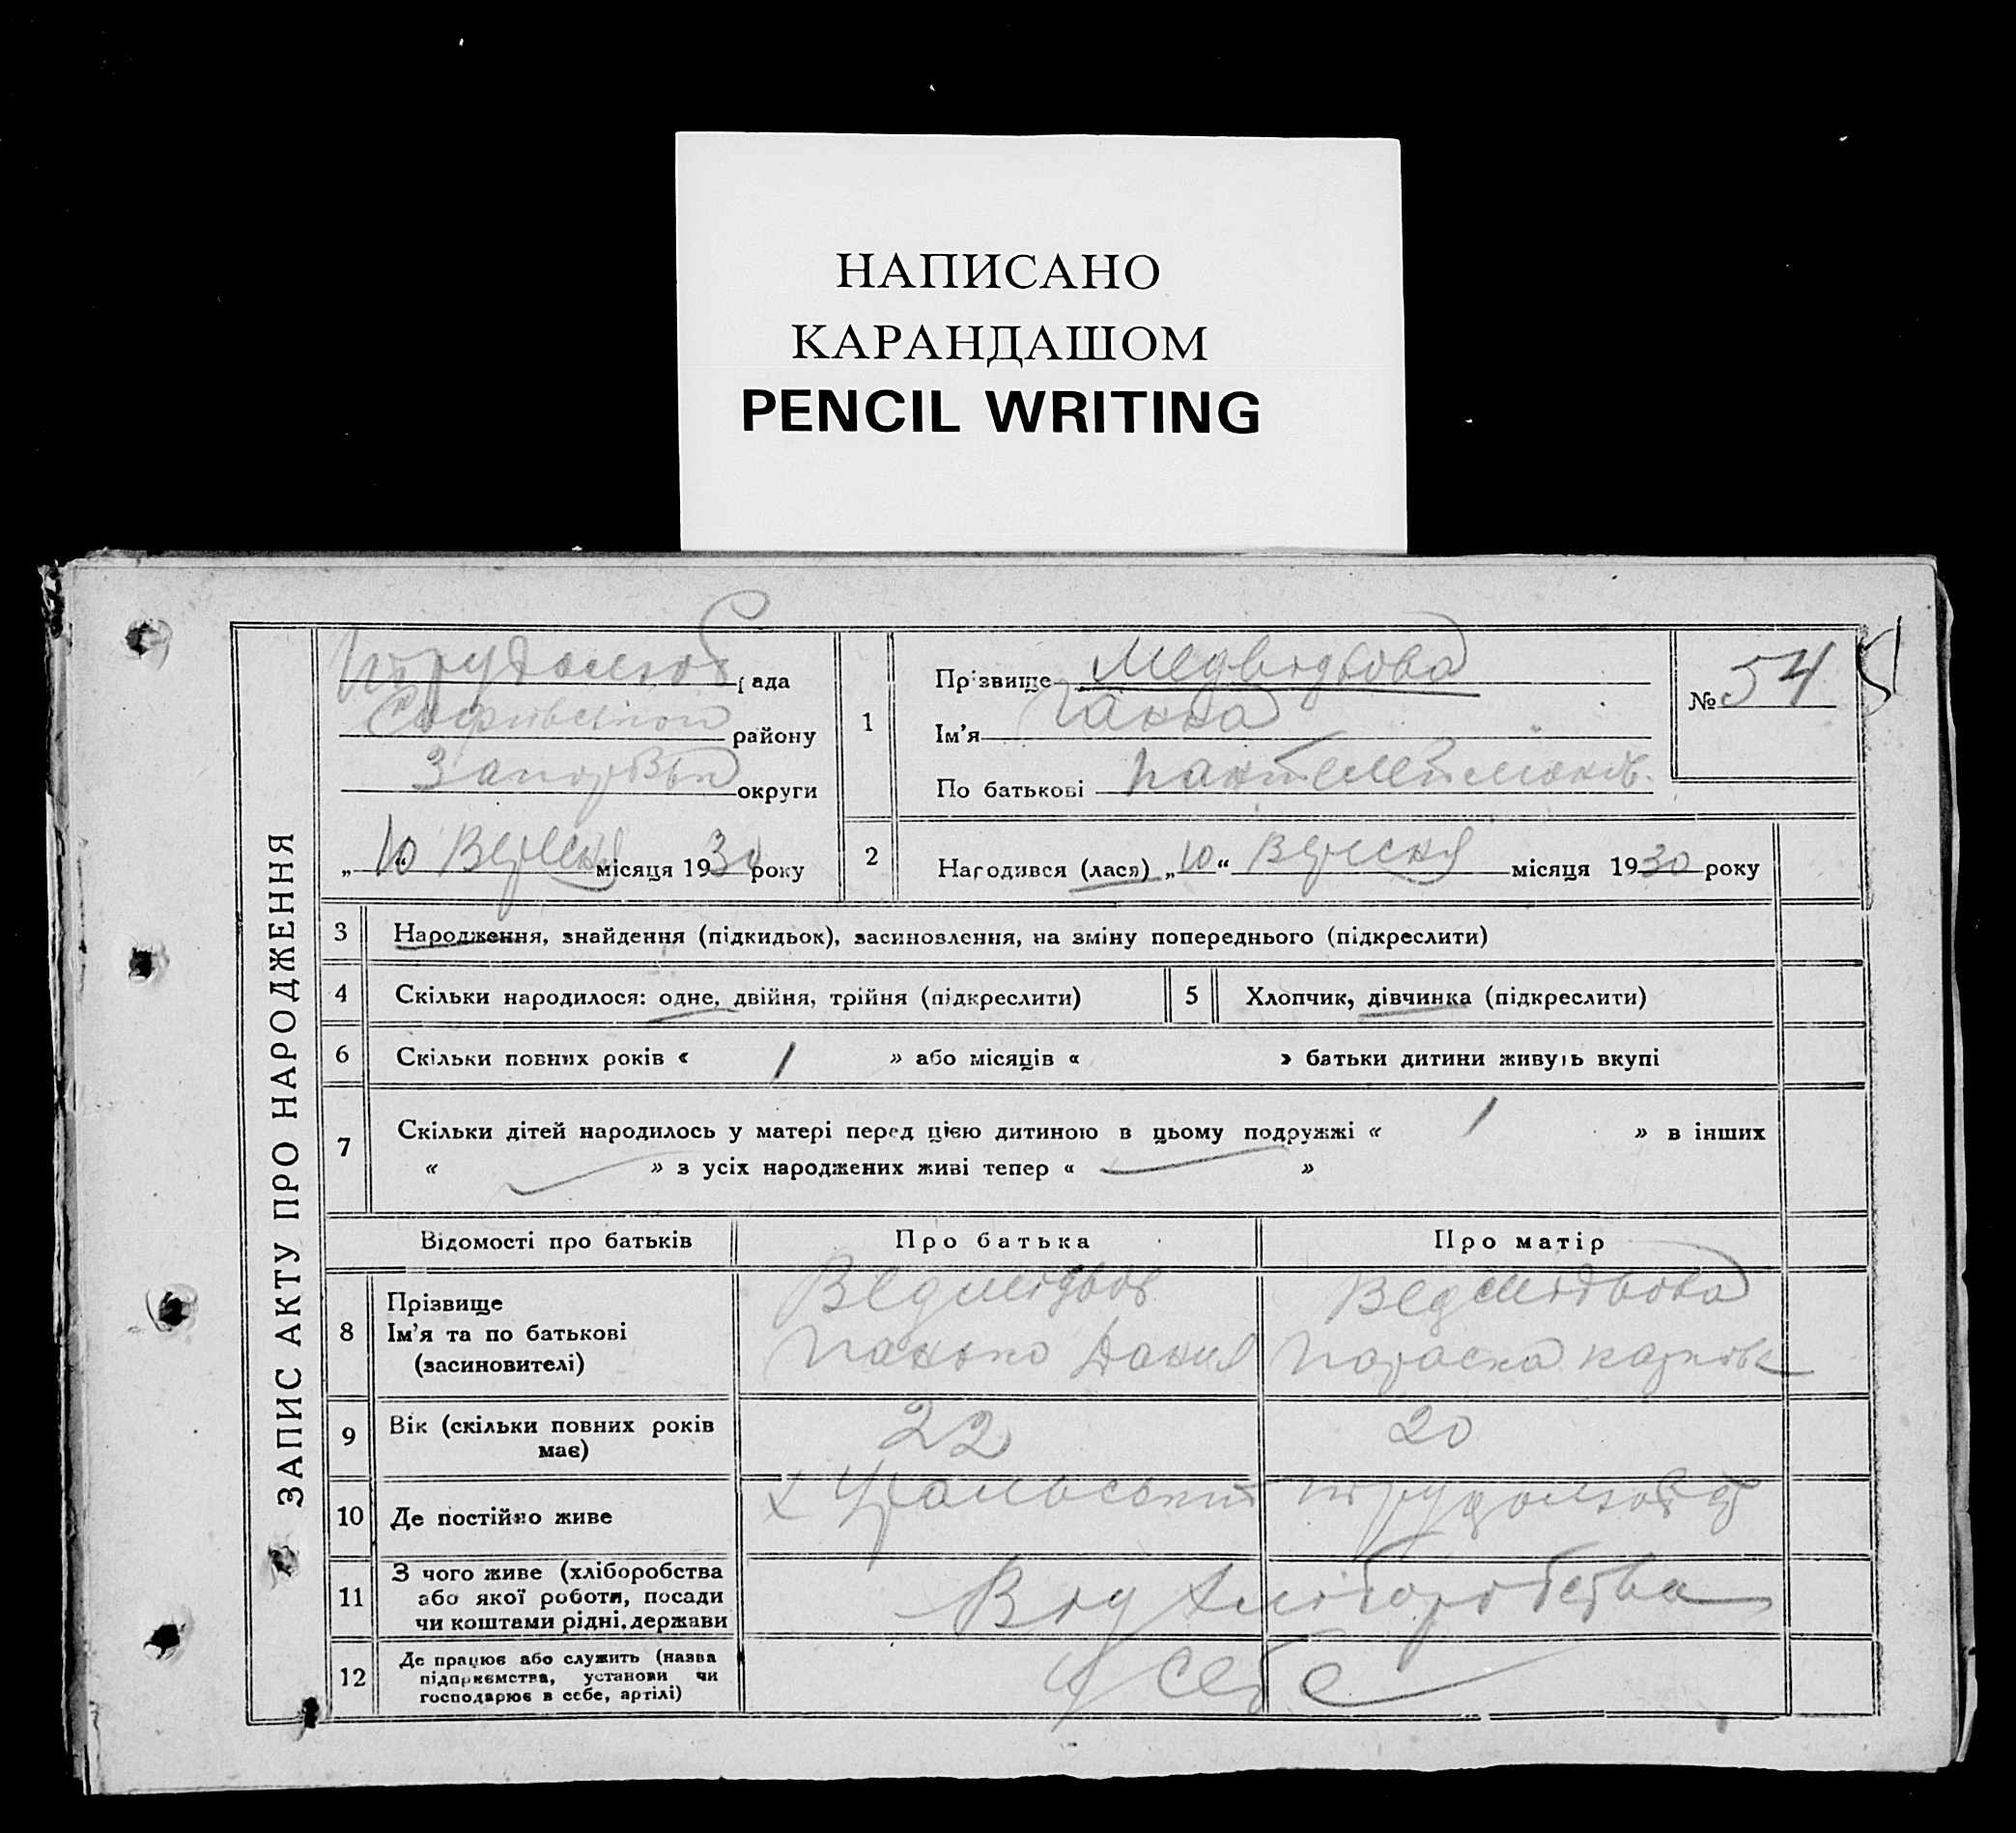 НАПИСАНО
КАРАНДАШОМ
PENCIL WRITING
ЗАПИС АКТУ ПРО НАРОДЖЕННЯ
рада
району
округи
„10 Вересня місяця 1930 року
1
Прізвище Медвидьова
Ім'я Ганна
По батькові
№ 54
2
Народився (лася) „10“ Вересня місяця 1930 року
3 Народження, знайдення (підкидьок), засиновлення, на зміну попереднього (підкреслити)
4 Скільки народилося: одне, двійня, трійня (підкреслити) 5 Хлопчик, дівчинка (підкреслити)
6 Скільки повних років « 1 » або місяців « » батьки дитини живуть вкупі
7 Скільки дітей народилось у матері перед цією дитиною в цьому подружжі « 1 » в інших
« » з усіх народжених живі тепер « »
Відомості про батьків Про батька Про матір
8 Прізвище
Ім'я та по батькові
(засиновителі)
Ведмідьов
Данил
Ведмидьова
Параска Карповн
9 Вік (скільки повних років
має)
22 20
10 Де постійно живе
11 З чого живе (хліборобства
або якої роботи, посади
чи коштами рідні, держави
Від хліборобства
12 Де працює або служить (назва
підприємства, установи чи
господарює в себе, артілі)
У себе